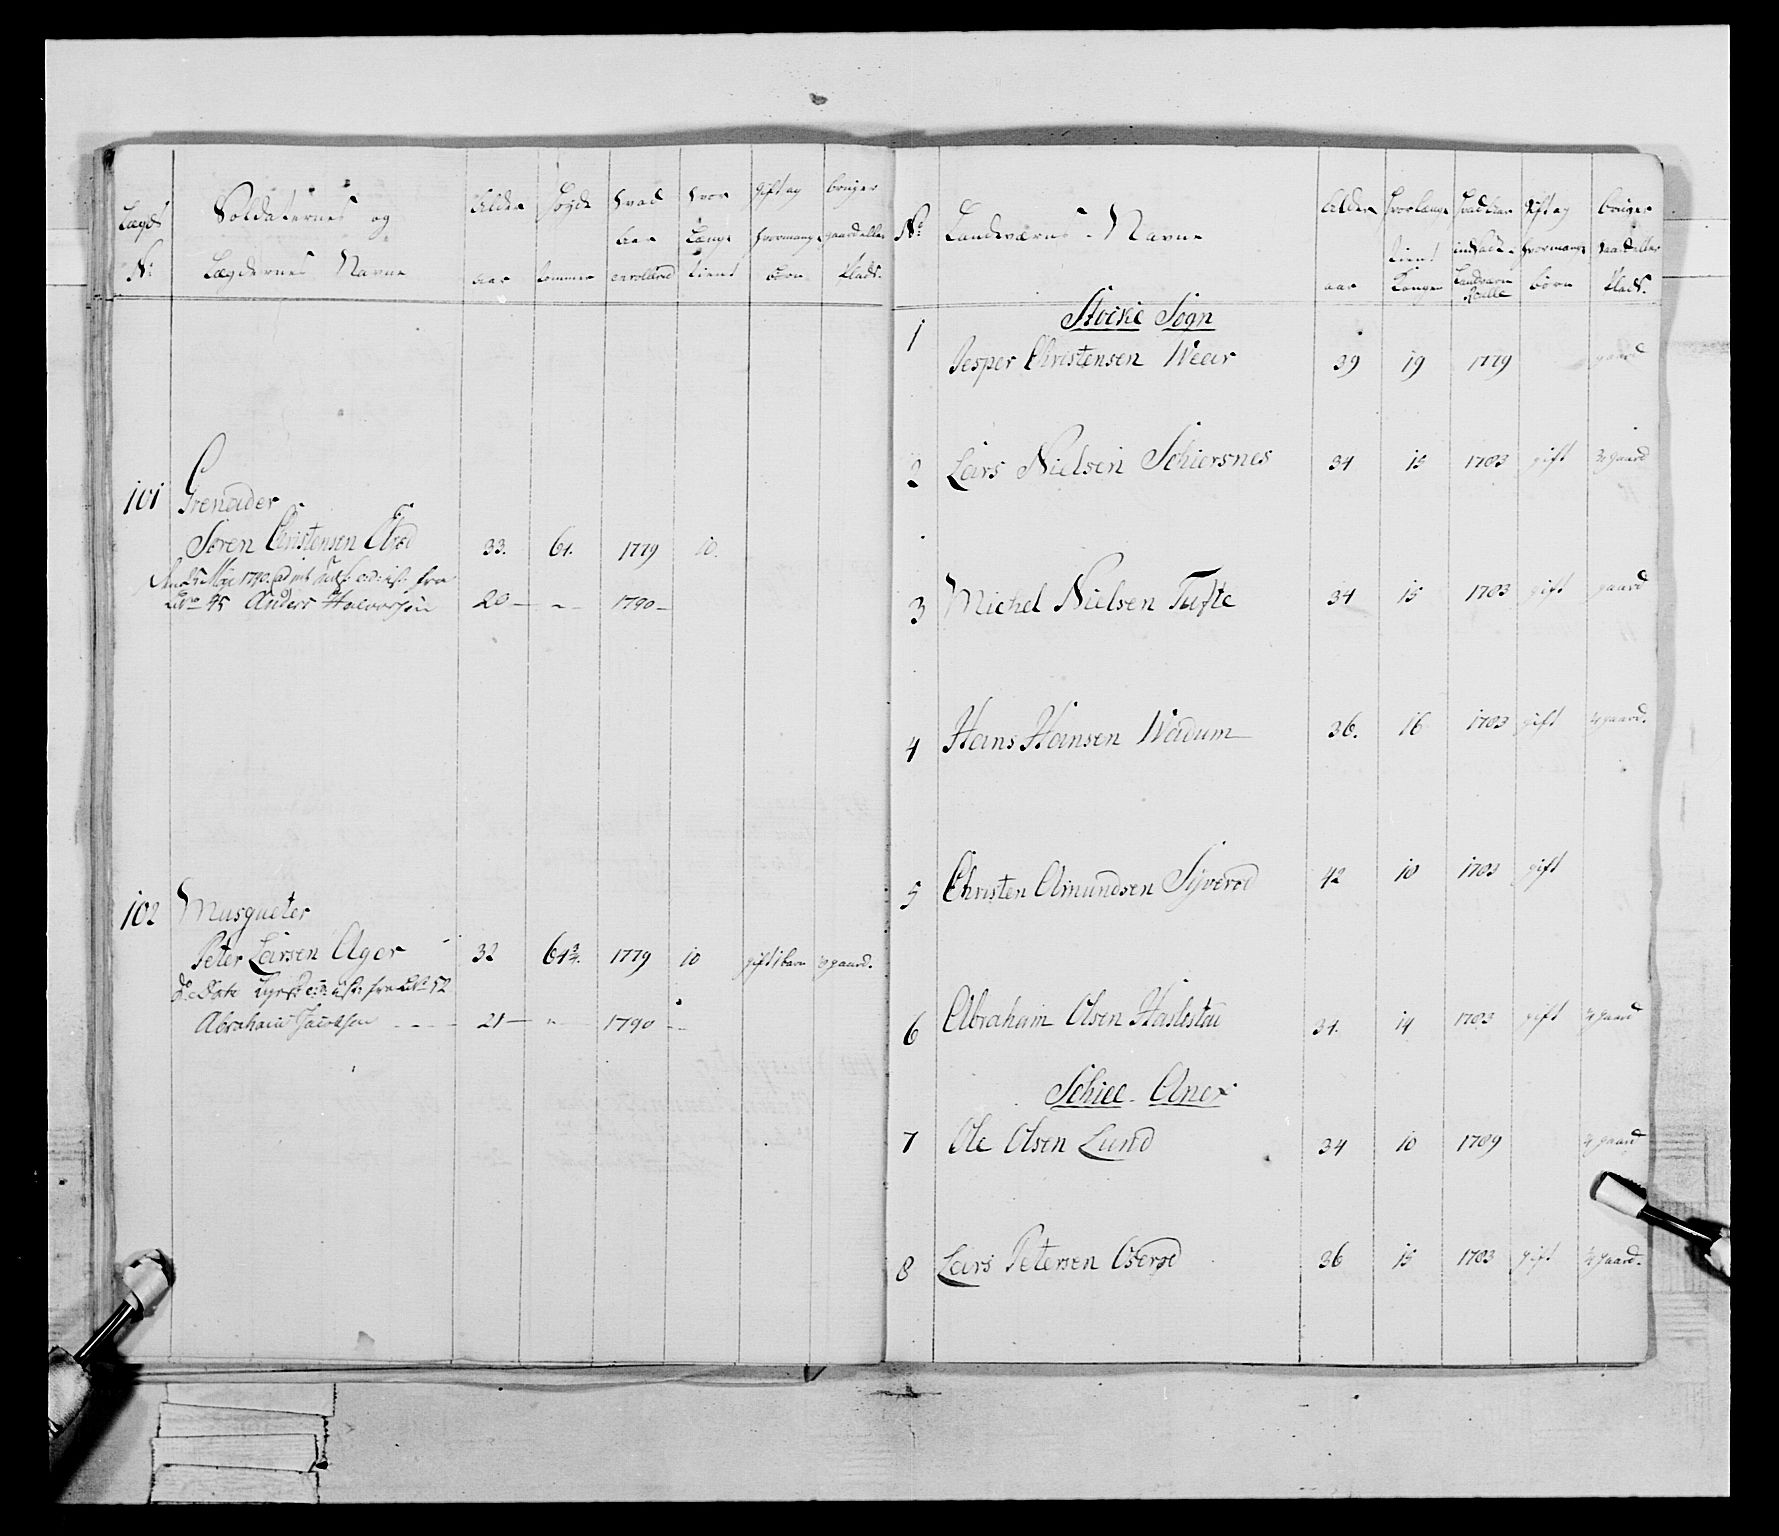 Lægd
No
Soldaternes og
Lægdernes Navne
Alder
aar
Høyde
tommer
hvad
aar
enrollered
hvor
Længe
tient
gift og
hvormange
børn
bruger
gaard eller
Plads.
101
Grenader
Søren Christensen Elrød 33. 61. 1779 10.
Den 25 May 1790
No 45 Anders Halvorsen 20 – „ – 1790 –
102
Musqueter
Peter Larsen Ager 32 64 3/4. 1779 10 gift 1 barn gaard.
fra No 52
Abraham Jacobsen – – – 21 – „ – 1790 – –
No
Landværns – Navne
Alder
aar
hvorlænge
tient
Kongen
hvad aar
indsadt
Landværn
Rulle
Gift og
hvormange
børn
bruger
gaard eller
Plads.
Stocke Sogn
1 Jesper Christensen Weer 39 19 1779 gaard
2 Lars Nielsen Schiersnes 34 15 1783 gift gaard
3 Michel Nielsen Tufte 34 15 1783 gift gaard
4 Hans Hansen Wadum 36. 16 1783 gift gaard.
5 Christen Amundsen Syverød 42 10 1783 gift
6 Abraham Olsen Haslestad 34. 14 1783 gift gaard
Schiee Anex
7 Ole Olsen Lund 34 10 1789 gaard
8 Lars Petersen Oserød 36 15 1783 gift gaard.